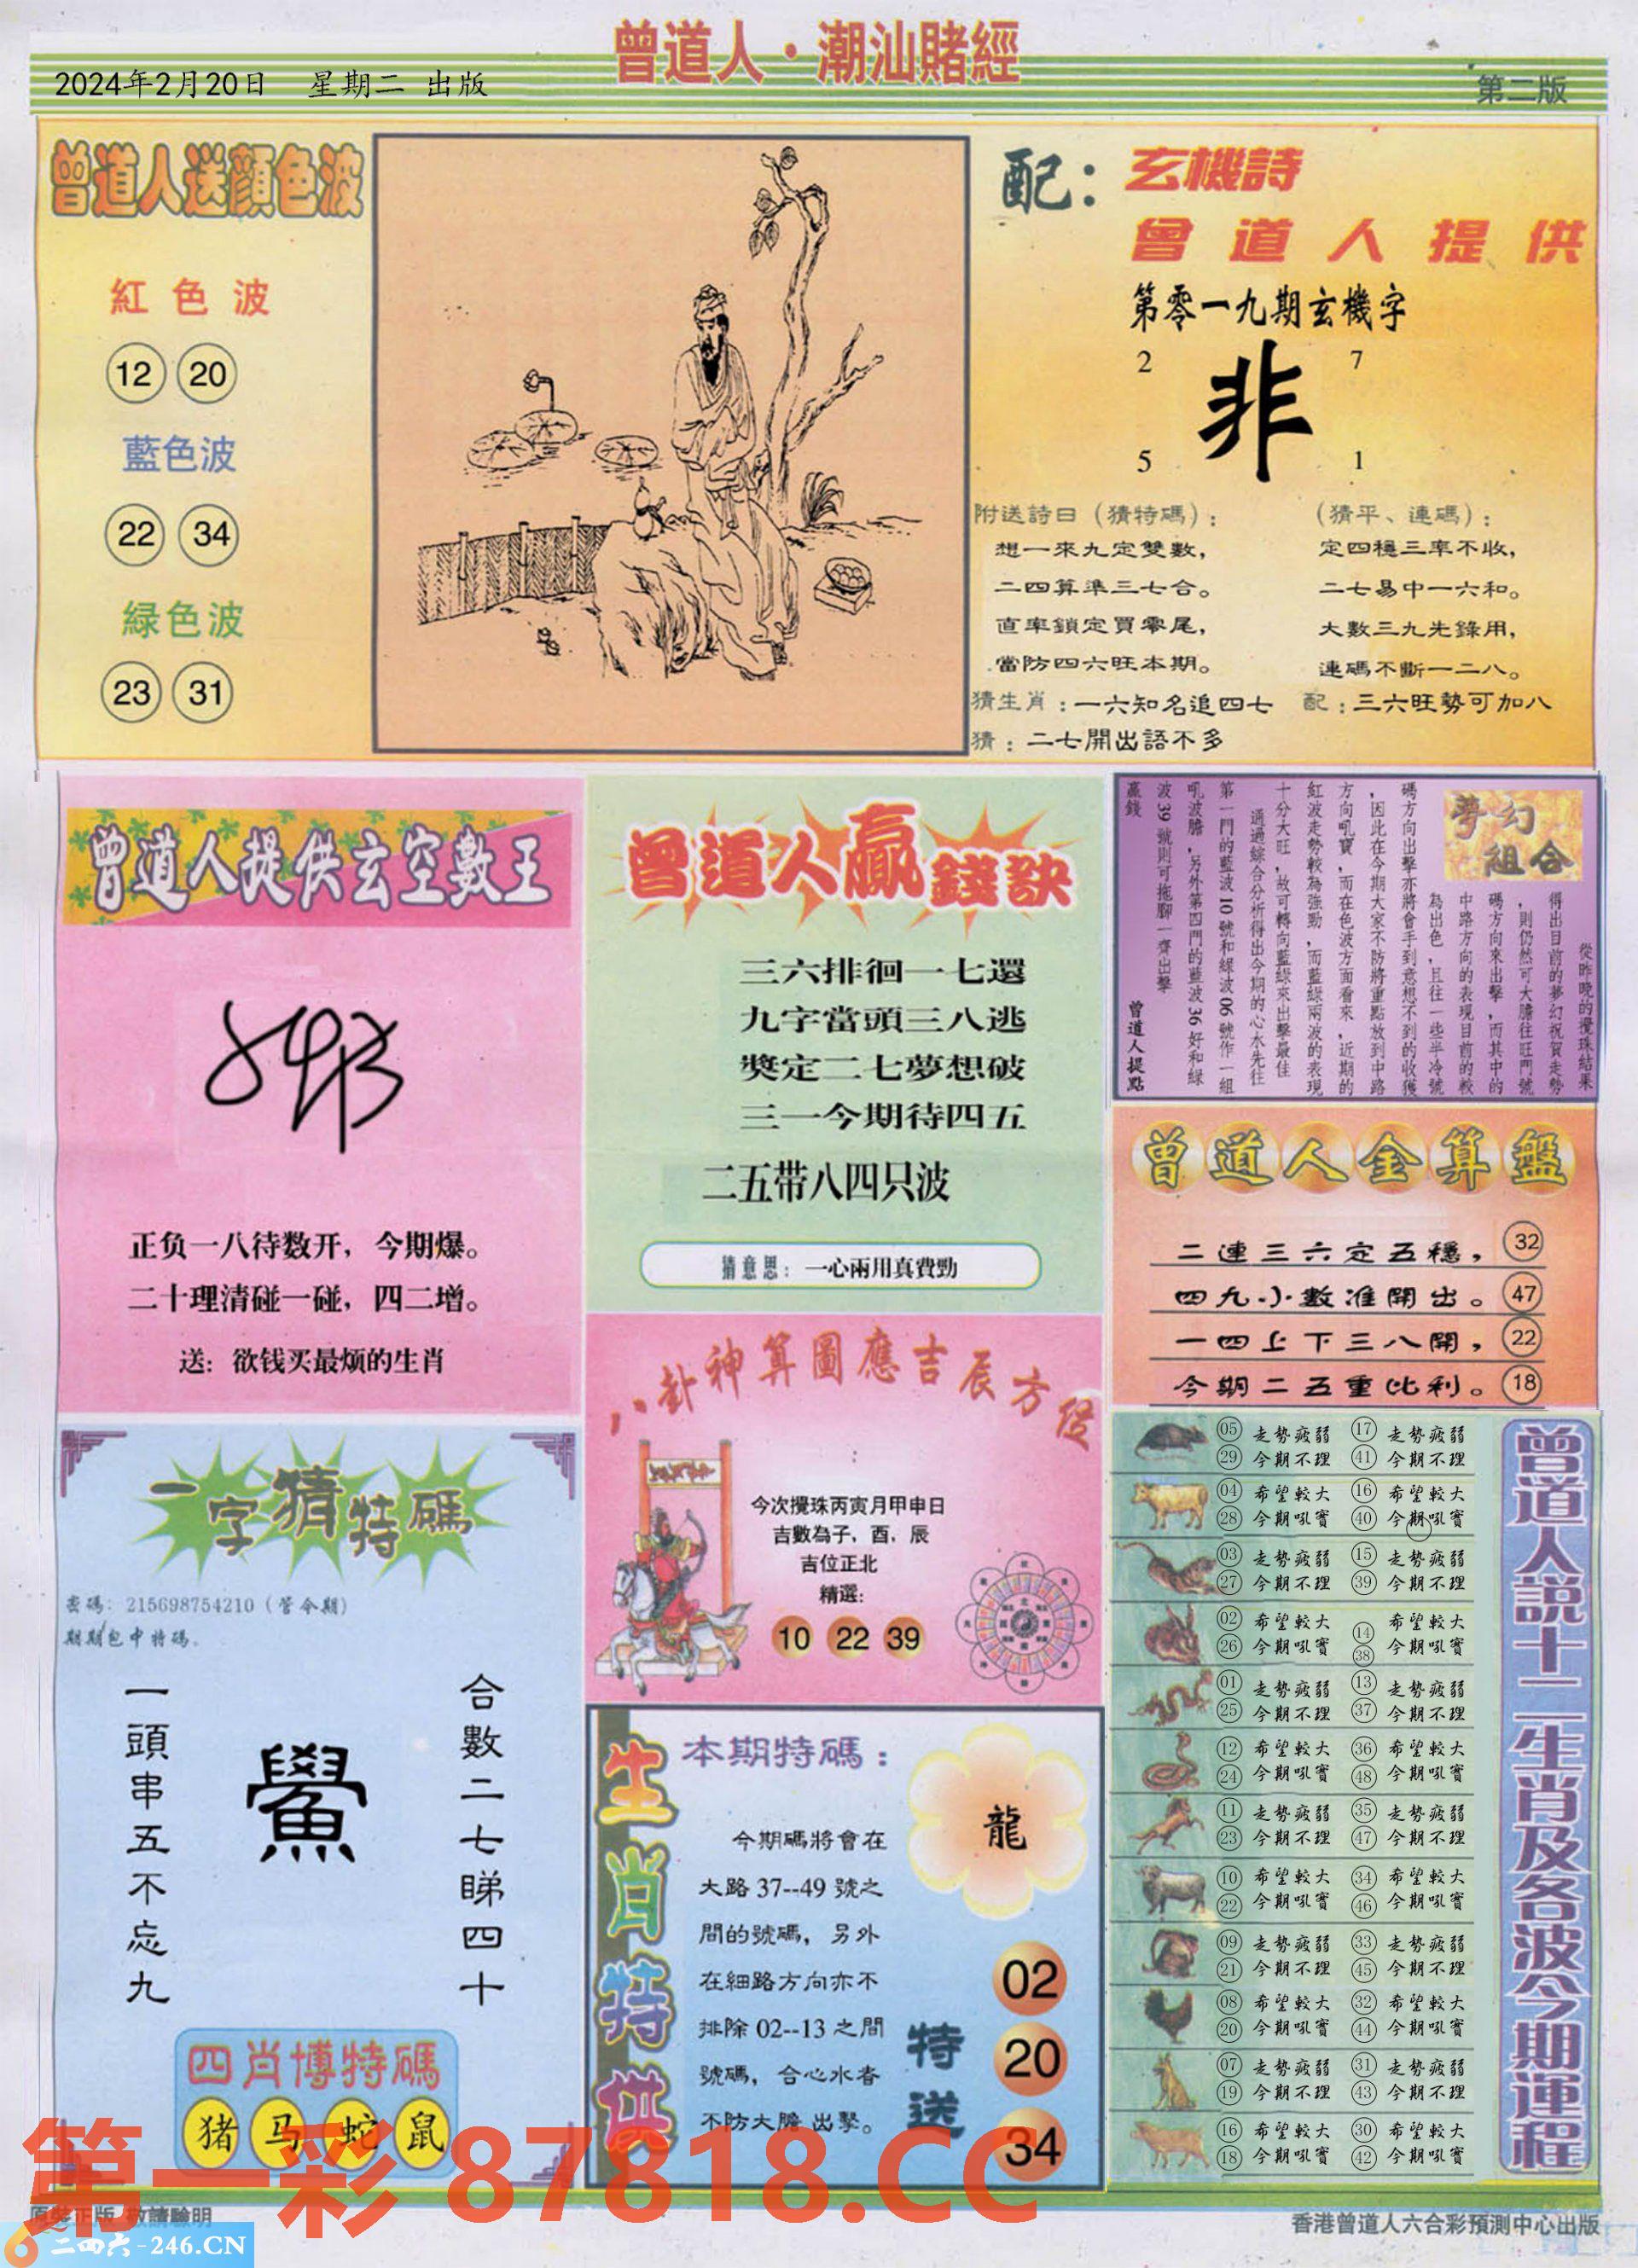 曾道人·潮汕賭經
2024年2月20日 星期二 出版
第二版
曾道人送顔色波
紅色波
12 20
藍色波
22 34
緑色波
23 31
配：玄機詩
曾道人提供
第零一九期玄機字
2 7
非
5 1
附送詩曰（猜特碼）：
想一來九定雙數，
二四算準三七合。
直率鎖定買零尾，
當防四六旺本期。
（猜平、連碼）：
定四穩三率不收，
二七易中一六和。
大數三九先錄用，
連碼不斷一二八。
猜生肖：一六知名追四七
配：三六旺勢可加八
猜：二七開出語不多
曾道人提供玄空數王
正负一八待数开，今期爆。
二十理清碰一碰，四二增。
送：欲钱买最烦的生肖
曾道人贏錢訣
三六排徊一七還
九字當頭三八逃
獎定二七夢想破
三一今期待四五
二五带八四只波
猜意思：一心兩用真費勁
夢幻
組合
從昨晚的攪珠結果
得出目前的夢幻祝賀走勢
，則仍然可大膽往旺門號
碼方向來出擊，而其中的
中路方向的表現目前的較
為出色，且往一些半冷號
碼方向出擊亦將會手到意想不到的收獲
，因此在今期大家不防將重點放到中路
方向吼寶，而在色波方面看來，近期的
紅波走勢較為強勁，而藍綠兩波的表現
十分大旺，故可轉向藍綠來出擊最佳
通過綜合分析得出今期的心水先往
第一門的藍波10號和綠波06號作一組
吼波膽，另外第四門的藍波36好和綠
波39號則可拖腳一齊出擊
贏錢
曾道人提點
曾道人金算盤
二連三六定五穩，32
四九小數准開出。47
一四上下三八開，22
今期二五重比利。18
八卦神算圖應吉辰方位
今次攪珠丙寅月甲申日
吉數為子，酉，辰
吉位正北
精選：
10 22 39
一字猜特碼
密碼：215698754210（管令期）
期期包中特碼。
一頭串五不忘九
鱟
合數二七睇四十
四肖博特碼
猪 马 蛇 鼠
生肖特供
本期特碼：
龍
今期碼將會在
大路37--49號之
間的號碼，另外
在細路方向亦不
排除02--13之間
號碼，合心水者
不防大膽出擊。
特送
02
20
34
曾道人說十二生肖及各波今期運程
05 走勢疲弱 17 走勢疲弱
29 今期不理 41 今期不理
04 希望較大 16 希望較大
28 今期吼實 40 今期吼實
03 走勢疲弱 15 走勢疲弱
27 今期不理 39 今期不理
02 希望較大 14 希望較大
26 今期吼實 38 今期吼實
01 走勢疲弱 13 走勢疲弱
25 今期不理 37 今期不理
12 希望較大 36 希望較大
24 今期吼實 48 今期吼實
11 走勢疲弱 35 走勢疲弱
23 今期不理 47 今期不理
10 希望較大 34 希望較大
22 今期吼實 46 今期吼實
09 走勢疲弱 33 走勢疲弱
21 今期不理 45 今期不理
08 希望較大 32 希望較大
20 今期吼實 44 今期吼實
07 走勢疲弱 31 走勢疲弱
19 今期不理 43 今期不理
16 希望較大 30 希望較大
18 今期吼實 42 今期吼實
第一彩 87818.CC
原裝正版 敬請驗明
二四六-246.CN
香港曾道人六合彩預測中心出版